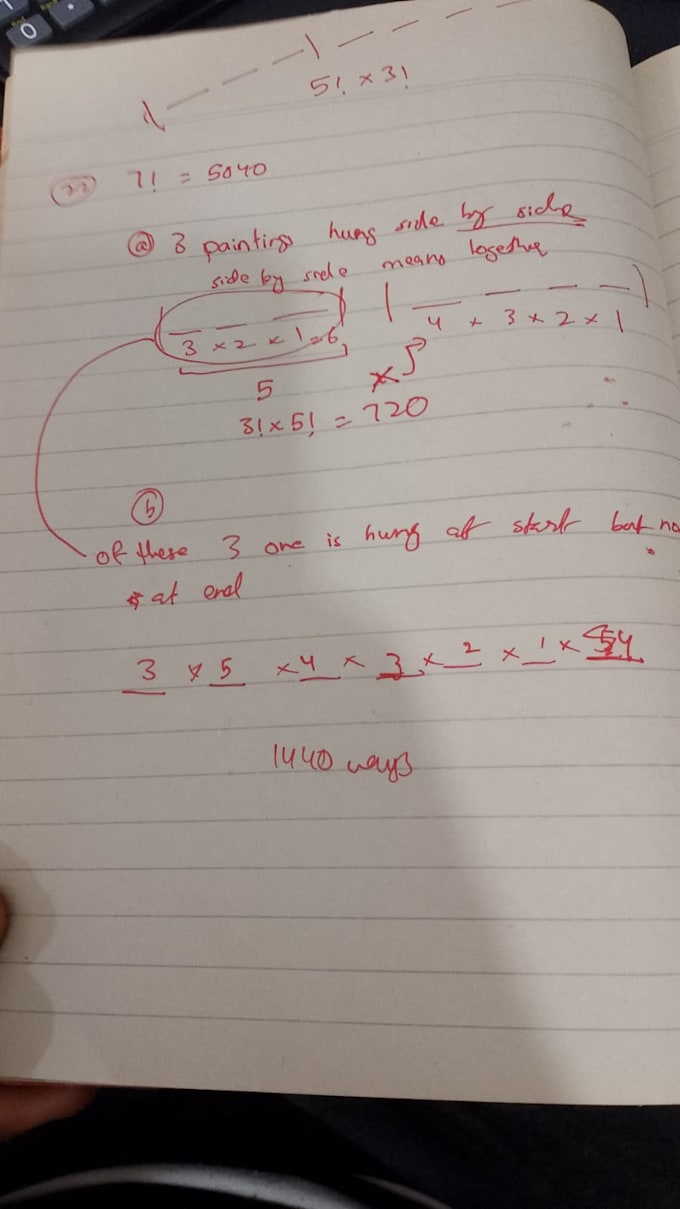 5! × 3!
22 7! = 5040
ⓐ 3 paintings hung side by side
side by side means together
3 × 2 × 1 = 6 4 × 3 × 2 × 1
5 × 5
3! × 5! = 720
ⓑ
of these 3 one is hung at start but no
at end
3 × 5 × 4 × 3 × 2 × 1 × 4
1440 ways